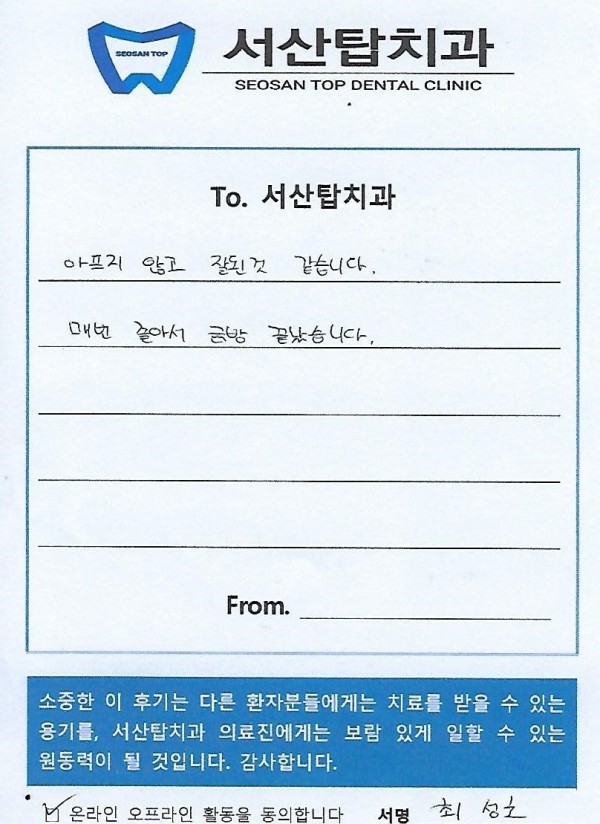 SEOSAN TOP
서산탑치과
SEOSAN TOP DENTAL CLINIC
To. 서산탑치과
아프지 않고 잘된것 같습니다.
매번 졸아서 금방 끝났습니다.
From.
소중한 이 후기는 다른 환자분들에게는 치료를 받을 수 있는
용기를, 서산탑치과 의료진에게는 보람 있게 일할 수 있는
원동력이 될 것입니다. 감사합니다.
온라인 오프라인 활동을 동의합니다 서명 최 성